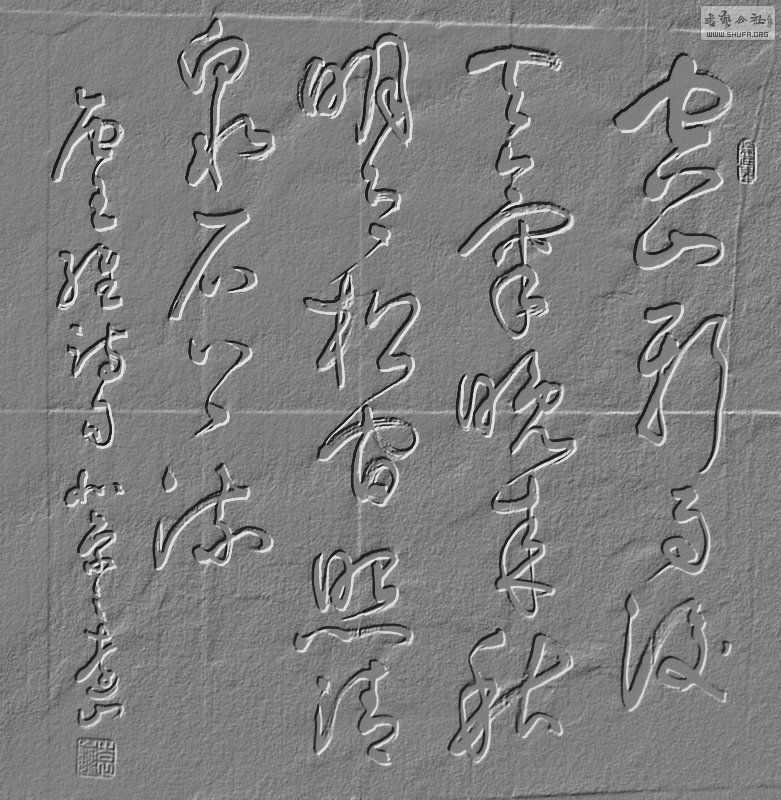 空山新雨後
天氣晚来秋
明月松間照清
泉石上流
唐王維詩句
书艺公社
WWW.SHUFA.ORG